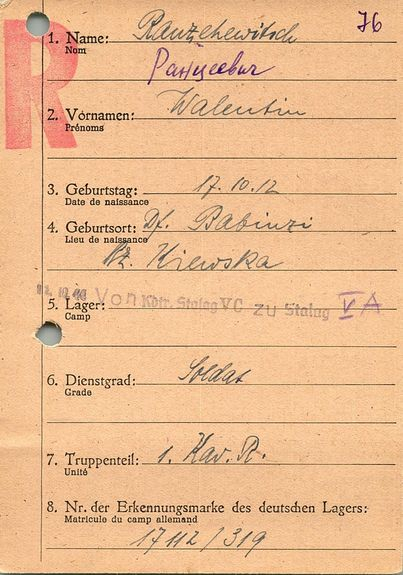 R
76
1. Name: Ranzehewitsch
Nom
Ранцевич
2. Vornamen: Walentin
Prénoms
3. Geburtstag: 17.10.12
Date de naissance
4. Geburtsort: Df. Babinzi
Lieu de naissance
Bz. Kiewska
Von Kdtr. Stalag VC zu Stalag VA
5. Lager:
Camp
6. Dienstgrad: Soldat
Grade
7. Truppenteil: 1. Kav. R.
Unité
8. Nr. der Erkennungsmarke des deutschen Lagers:
Matricule du camp allemand
17112/319